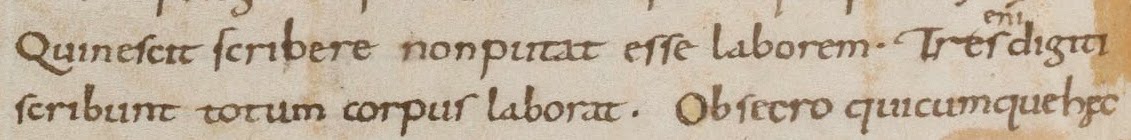 Qui nescit scribere non putat esse laborem. Tres eni digiti
scribunt totum corpus laborat. Obsecro quicumque hęc